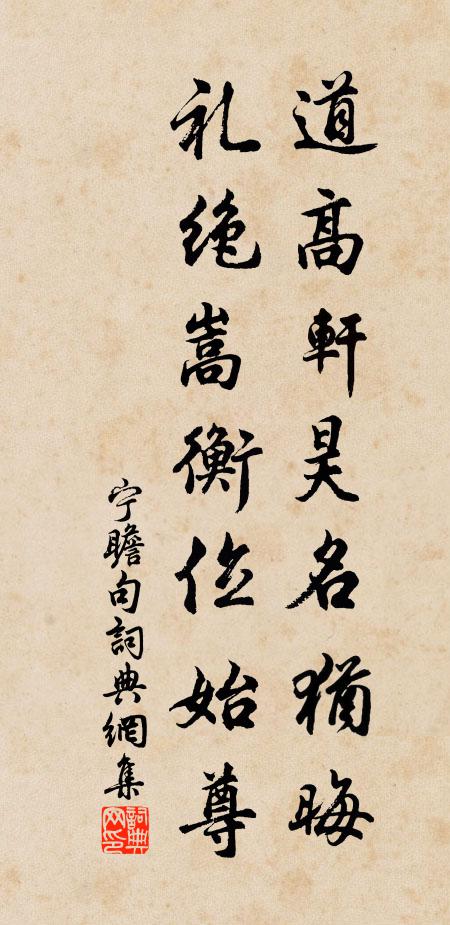 道高軒昊名猶晦
礼绝嵩衡位始尊
宁瞻句詞典網集
詞典
网印